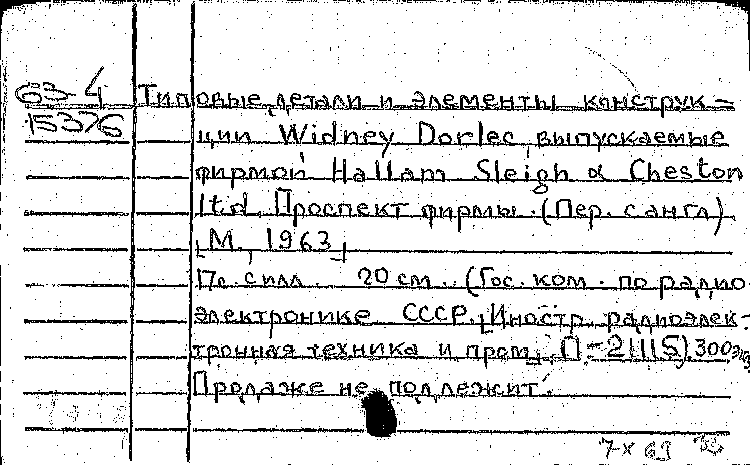 63-4 Типовые детали и элементы конструк-
15376 ции Widney Dorlec, выпускаемые
фирмой Hallam Sleigh & Cheston
ltd. Проспект фирмы. (Пер. с англ)
[М., 1963]
17с. с илл. 20 см. (Гос. ком. по радио
электронике СССР. [Иностр. радиоэлек-
тронная техника и пром]. П-2111S). 300 экз
Продаже не подлежит.
7-X 63